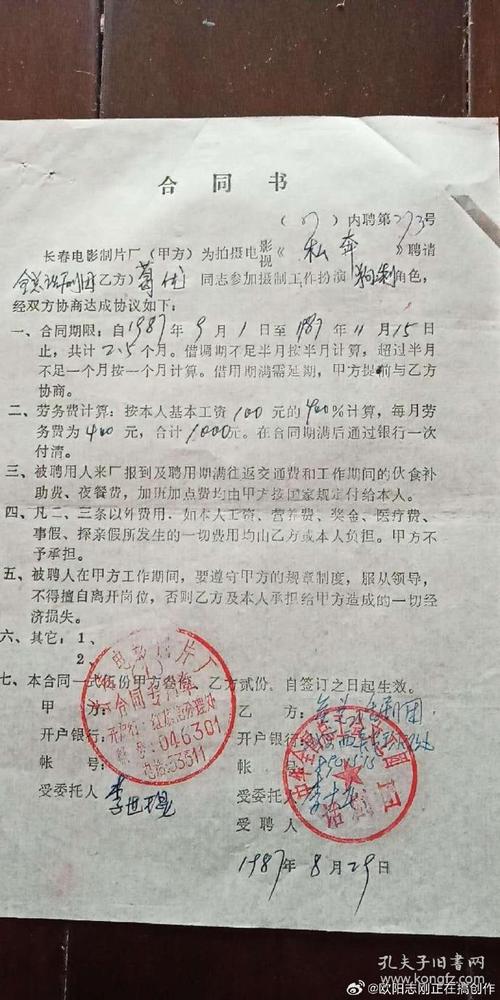 合同书
(87)内聘第273号
长春电影制片厂(甲方)为拍摄电影视《私奔》聘请
全总话剧团(乙方)葛优同志参加摄制工作扮演 角色,
经双方协商达成协议如下:
一、合同期限:自1987年9月1日至1987年11月15日
止,共计2.5个月。借调期不足半月按半月计算,超过半月
不足一个月按一个月计算。借用期满需延期,甲方提前与乙方
协商。
二、劳务费计算:按本人基本工资100元的400%计算,每月劳
务费为400元,合计1000元。在合同期满后通过银行一次
付清。
三、被聘用人来厂报到及聘用期满往返交通费和工作期间的伙食补
助费、夜餐费,加班加点费均由甲方按国家规定付给本人。
四、凡二、三条以外费用,如本人工资、营养费、奖金、医疗费、
事假、探亲假所发生的一切费用均由乙方或本人负担。甲方不
予承担。
五、被聘人在甲方工作期间,要遵守甲方的规章制度,服从领导,
不得擅自离开岗位,否则乙方及本人承担给甲方造成的一切经
济损失。
六、其它:1、
2、
七、本合同一式伍份甲方叁份,乙方贰份,自签订之日起生效。
甲方:
乙方:全总话剧团
开户银行:
开户银行:
帐号:
帐号:
受委托人
受委托人
受聘人
电影制片厂
合同专用章
开户行:红旗街分理处
帐号:046301
电话:53511
话剧团
1987年8月29日
孔夫子旧书网
www.kongfz.com
@欧阳志刚正在搞创作